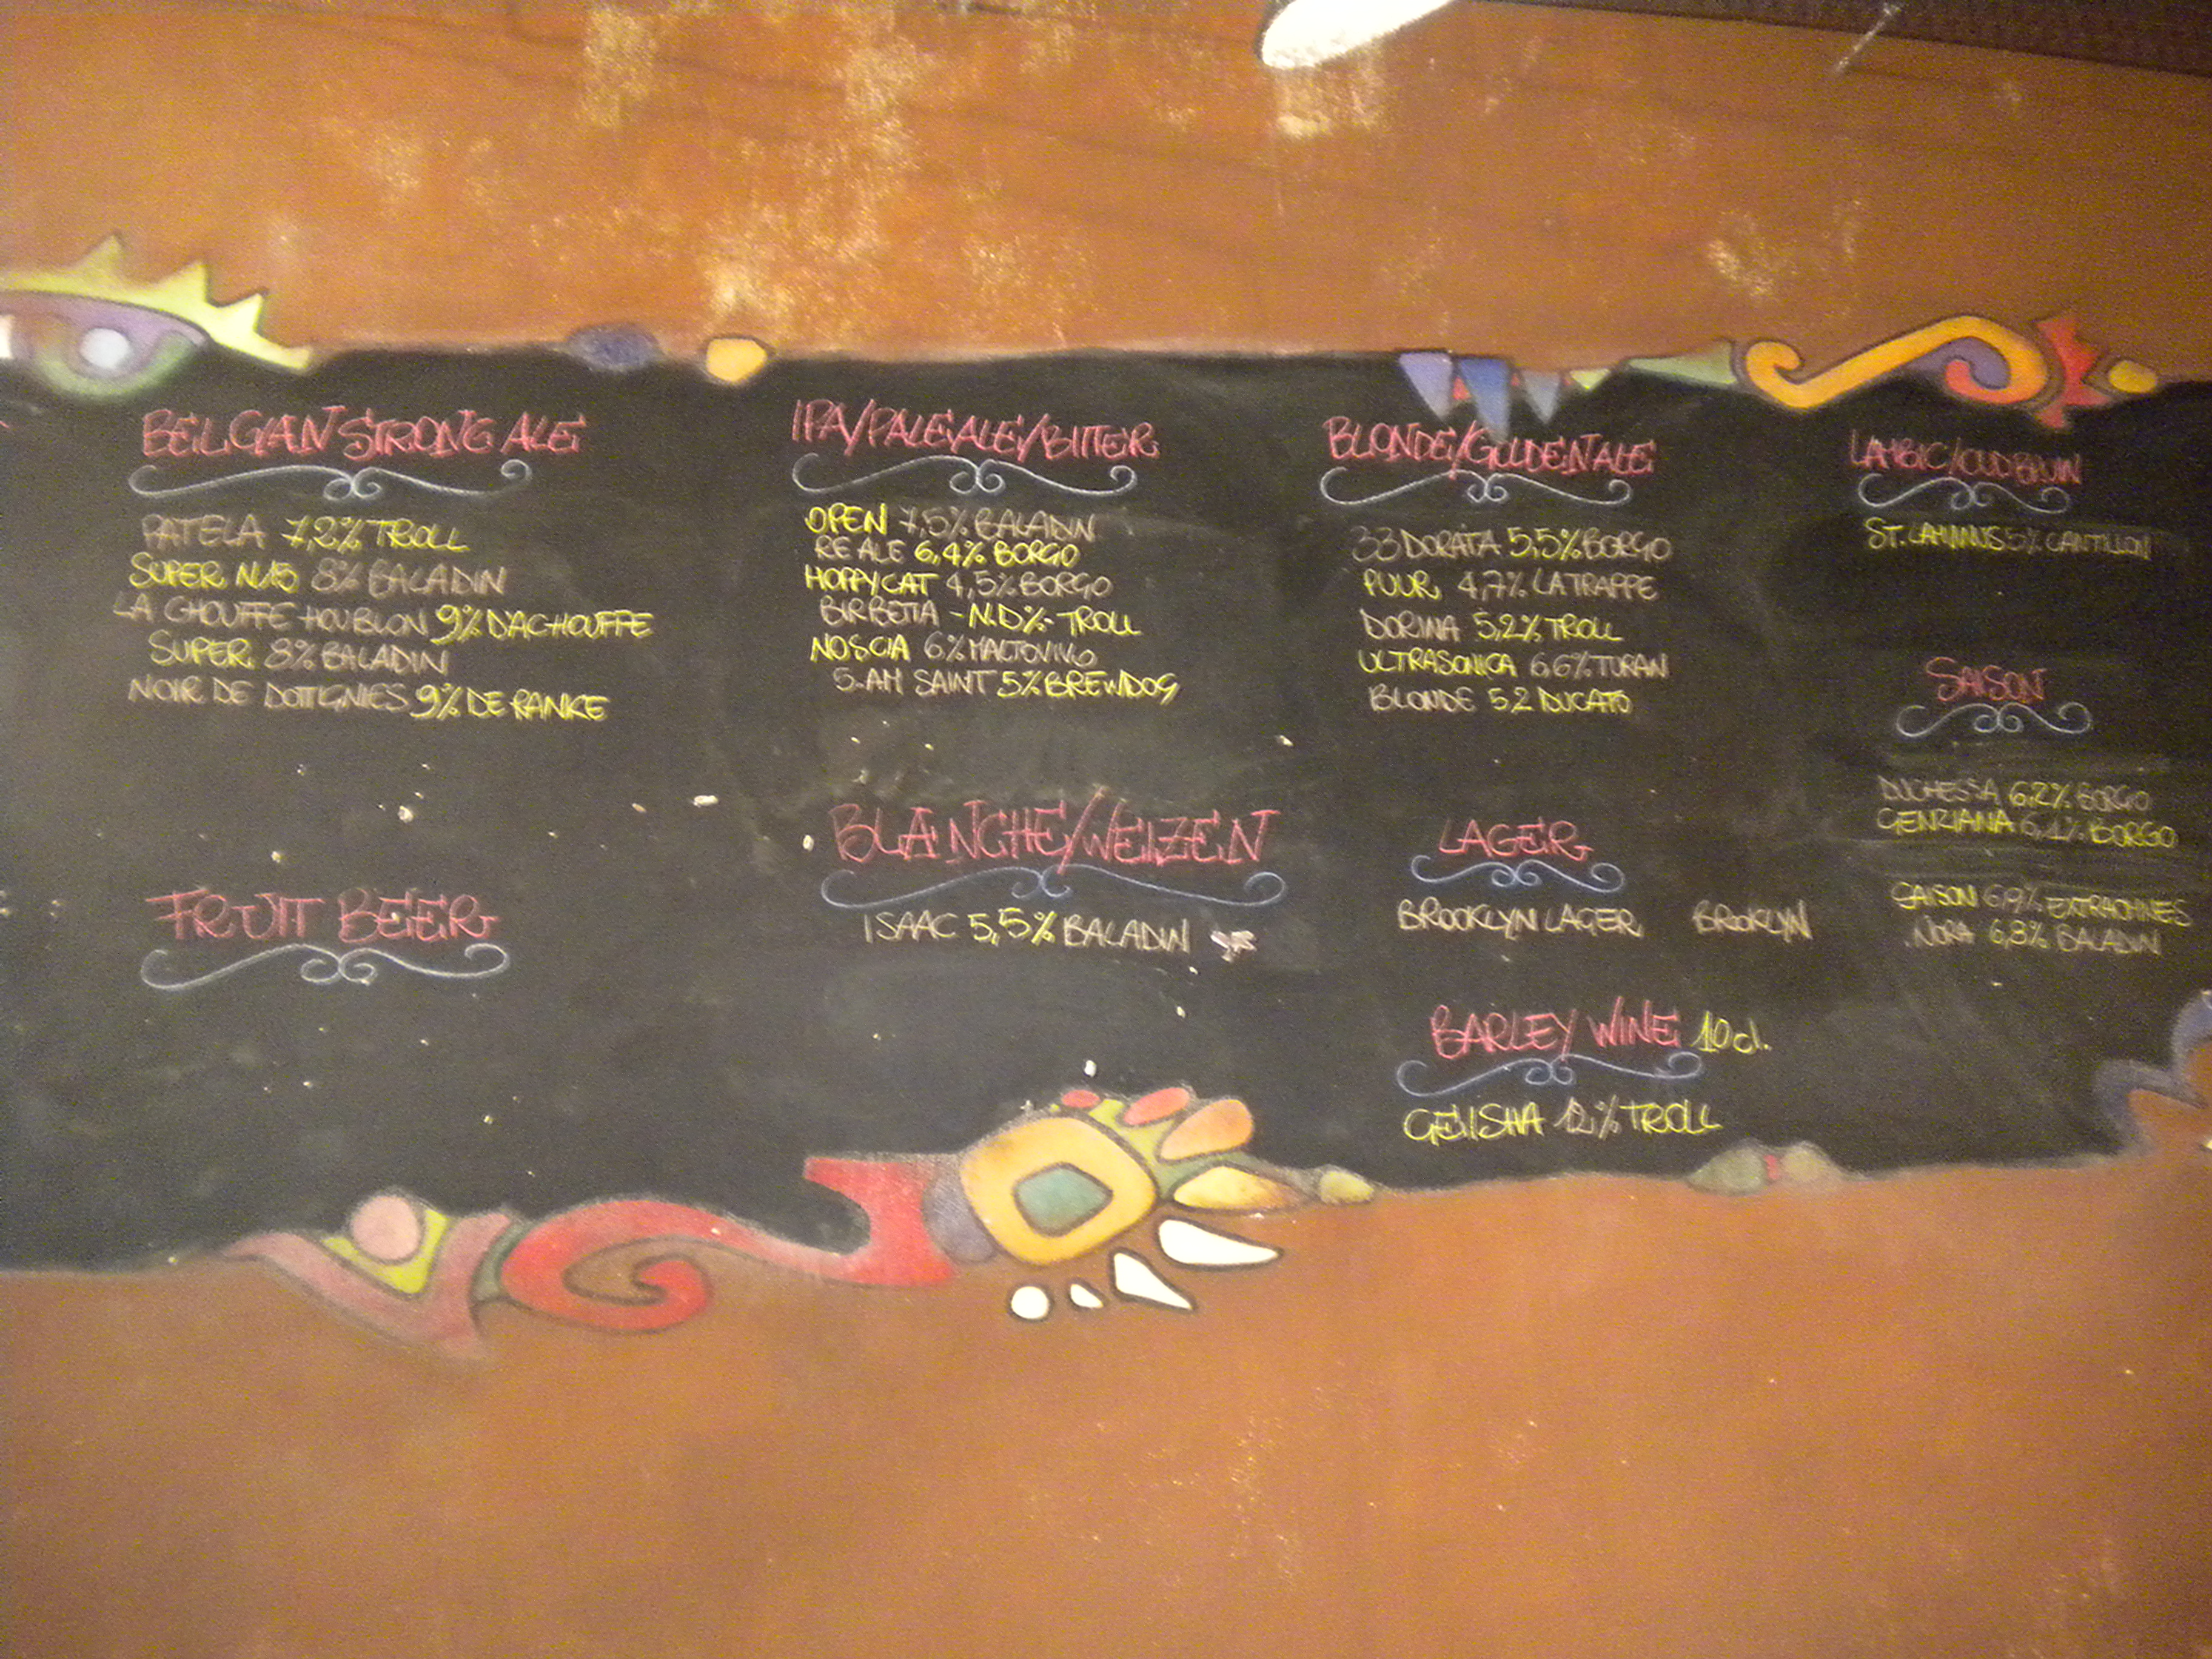 BELGIAN STRONG ALE
PATELA 7,2% TROLL
SUPER N.15 8% BALADIN
LA CHOUFFE HOUBLON 9% DACHOUFFE
SUPER 8% BALADIN
NOIR DE DOTTIGNIES 9% DE RANKE
FRUIT BEER
IPA/PALE ALE/BITTER
OPEN 7,5% BALADIN
RE ALE 6,4% BORGO
HOPPYCAT 4,5% BORGO
BIRBETTA - N.D%- TROLL
NOSCIA 6% MALTOVIVO
5.AM SAINT 5% BREWDOG
BLANCHE/WEIZEN
ISAAC 5,5% BALADIN
BLONDE/GOLDEN ALE
33 DORATA 5,5% BORGO
PUUR 4,7% LA TRAPPE
DORINA 5,2% TROLL
ULTRASONICA 6,6% TURAN
BLONDE 5,2 DUCATO
LAGER
BROOKLYN LAGER BROOKLYN
BARLEY WINE 10 cl.
GEIISHA 12% TROLL
LAMBIC/OUD BRUIN
ST. LAMINUS 5% CANTILLON
SAISON
DUCHESSA 6,2% BORGO
GENZIANA 6,1% BORGO
SAISON 6,9% EXTRAOMNES
NORA 6,8% BALADIN